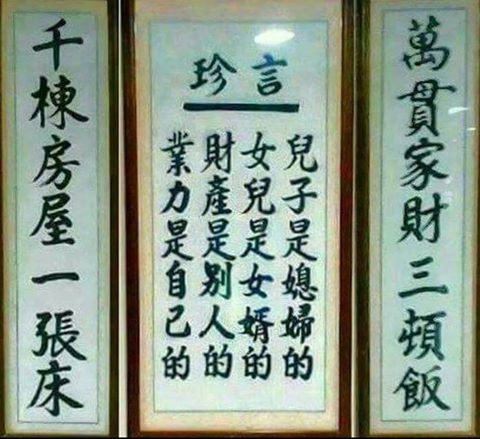 萬貫家財三頓飯
言珍
兒子是媳婦的
女兒是女婿的
財產是别人的
業力是自己的
千棟房屋一張床